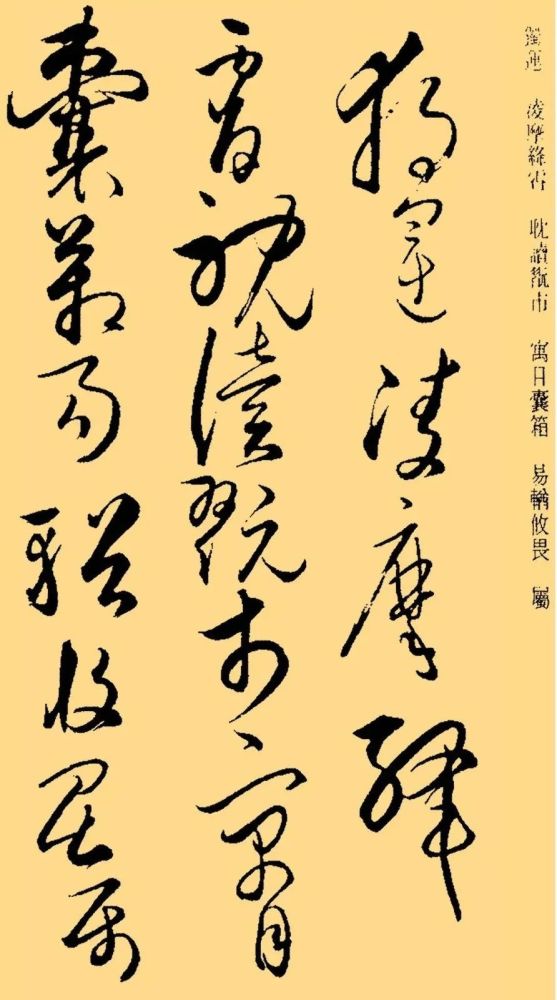 獨運 凌摩絳霄 耽讀翫市 寓目囊箱 易輶攸畏 屬
獨運凌摩絳
霄耽讀翫市寓目
囊箱易輶攸畏屬